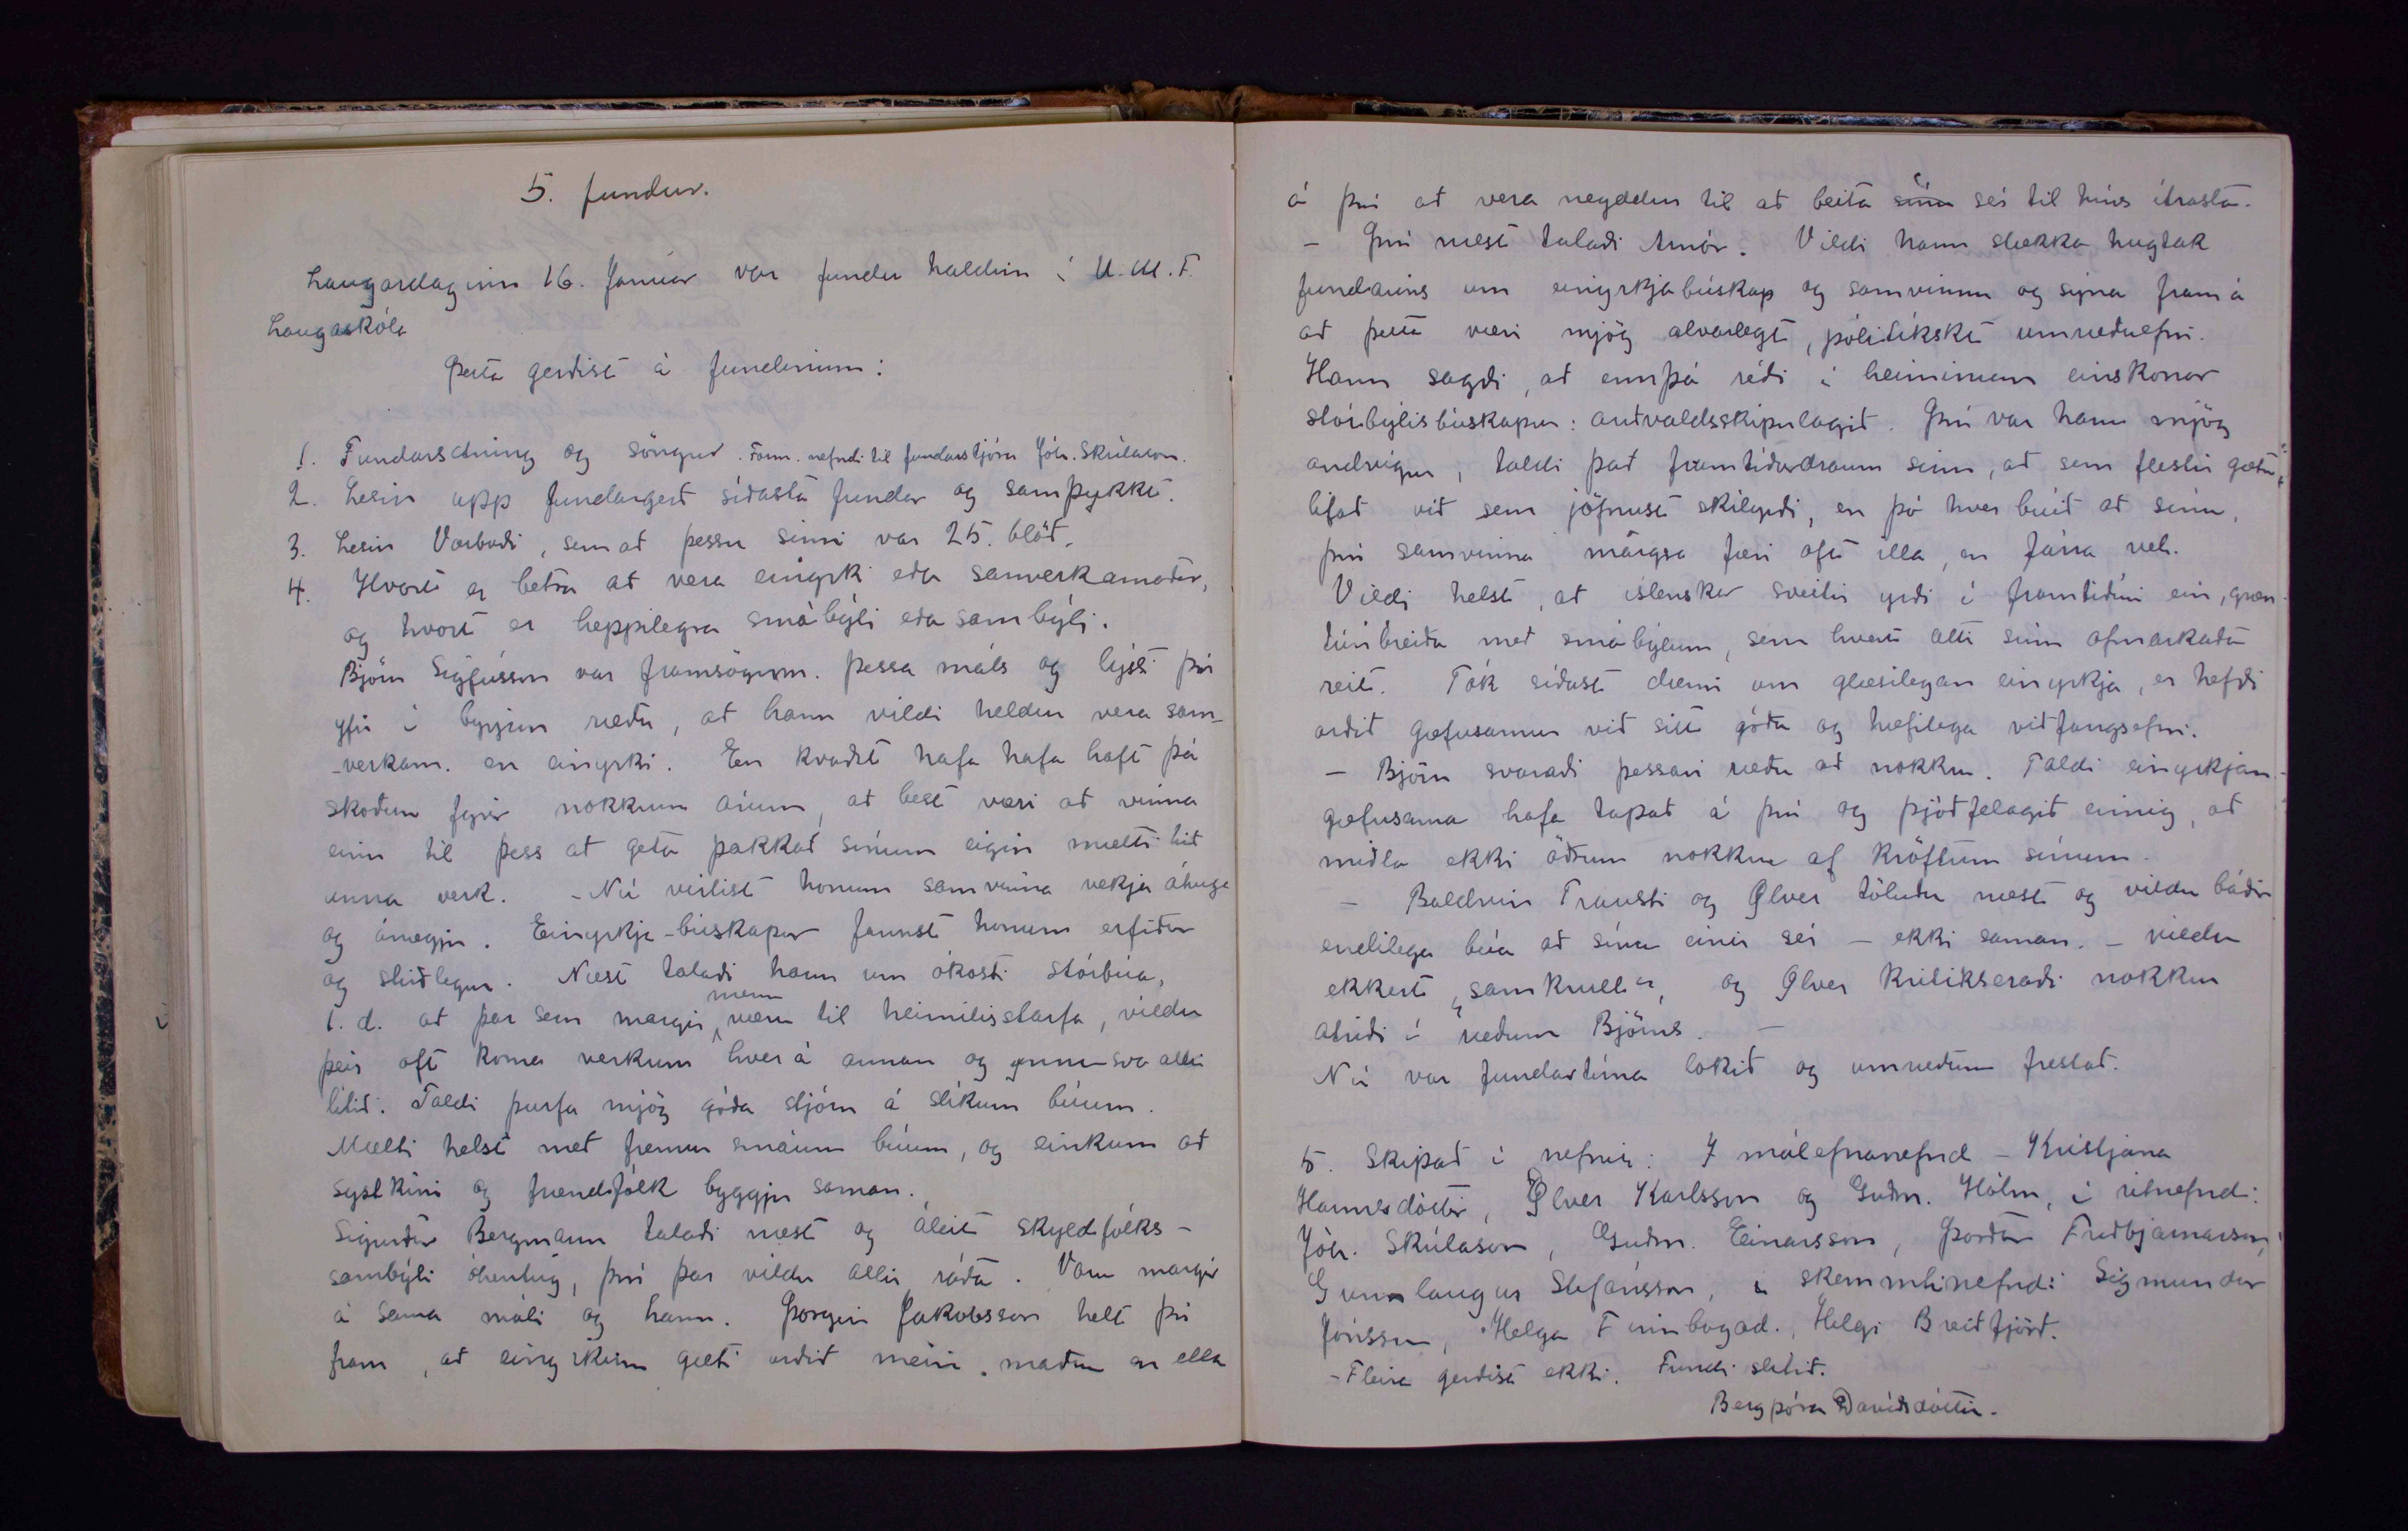 5. fundur.
Laugardaginn 16. Janúar var fundur haldinn í U.M.F.
Laugaskóla
Þetta gerðist á fundinum:
1. Fundarsetning og söngur. Form. nefndi til fundarstjóra Jóh. Skúlason.
2. Lesin upp fundargerð síðasta fundar og samþykkt.
3. Lesin Varboði, sem að þessu sinni var 25. blöð.
4. Hvort er betra að vera einyrki eða samverkamaður,
og hvort er heppilegra smábýli eða sambýli.
Björn Sigfússon var framsögum. þessa máls og lýsti því
yfir í byrjun ræðu, að hann vildi heldur vera sam-
-verkam. en einyrki. En kvaðst hafa hafa haft þá
skoðun fyrir nokkrum árum, að best væri að vinna
einn til þess að geta þakkað sínum eigin mætti hið
unna verk. - Nú virtist honum samvinna vekja áhuga
og ánægju. Einyrkja-búskapur fannst honum erfiður
og stritlegur. Næst talaði hann um ókosti stórbúa,
t.d. að þar sem margir menn væru til heimilisstarfa, vildu
þeir oft koma verkum hver á annan og ynnu svo allir
lítið. Taldi þurfa mjög góða stjórn á slíkum búum.
Mælti helst með fremur smáum búum, og einkum að
systkini og frændfólk byggju saman.
Sigurður Bergmann talaði næst og áleit skyldfólks-
sambýli óhentug, því þar vildu allir ráða. Voru margir
á sama máli og hann. Þorgeir Jakobsson helt því
fram, að einyrkinn gæti orðið meiri maður en ella
á því að vera neyddur til að beita sínu sér til hins ítrasta.
- Því næst talaði Arnór. Vildi hann stækka hugtak
fundarins um einyrkjabúskap og samvinnu og sýna fram á
að þetta væri mjög alvarlegt, pólitískt umræðuefni.
Hann sagði, að ennþá réði í heiminum einskonar
stórbýlisbúskapur: auðvaldsskipulagið. Því var hann mjög
andvígur, taldi það framtíðardraum sinn, að sem flestir gætu
lifað við sem jöfnust skilyrði, en þó hver búið að sínu,
því samvinna margra færi oft illa, en fárra vel.
Vildi helst, að íslenskar sveitir yrði í framtíðini ein, græn
túnbreiða með smábýlum, sem hvert ætti sinn afmarkaða
reit. Tók síðast dæmi um glæsilegan einyrkja, er hefði
orðið gæfusamur við sitt góða og hæfilega viðfangsefni.
- Björn svaraði þessari ræðu að nokkru. Taldi einyrkjan
gæfusama hafa tapað á því og þjóðfelagið einnig, að
miðla ekki öðrum nokkru af kröftum sínum.
- Baldvin Trausti og Ölver töluðu næst og vildu báðir
endilega búa að sínu einir sér - ekki saman. - vildu
ekkert „samkrull", og Ölver kritikseraði nokkur
atriði í ræðum Björns. -
Nú var fundartíma lokið og umræðum frestað.
5. Skipað í nefnir: Í málefnanefnd - Kristjana
Hannesdóttir, Ölver Karlsson og Guðm. Hólm, í ritnefnd:
Jóh. Skúlason, Guðm. Einarsson, Þórður Friðbjarnarson,
Gunnlaugur Stefánsson, í skemmtinefnd: Sigmundur
Jónsson, Helga Finnbogad., Helgi Breiðfjörð.
- Fleira gerðist ekki. Fundi slitið.
Bergþóra Davíðsdóttir.